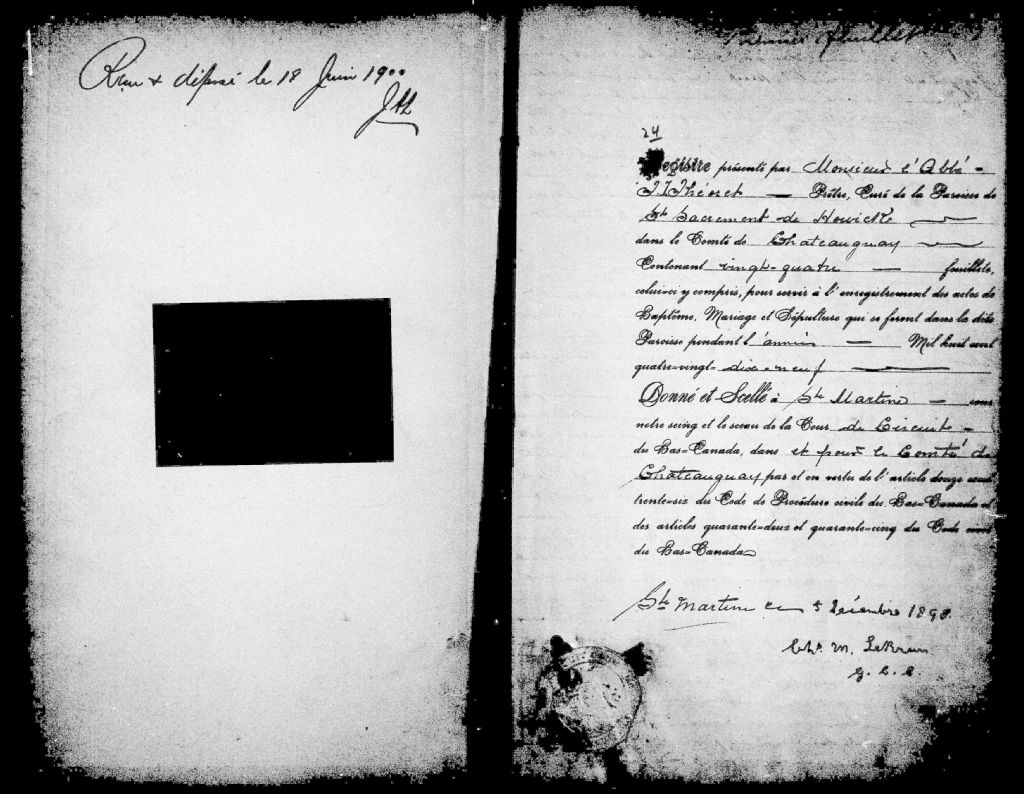 Reçu & déposé le 18 Juin 1900
Premier feuillet
24
Registre présenté par Monsieur l'Abbé -
Théoret — Prêtre, Curé de la Paroisse de
St Sacrement de Howick
dans le Comté de Chateauguay
Contenant vingt-quatre — feuillets,
celui-ci y compris, pour servir à l'enregistrement des actes de
Baptême, Mariage et Sépulture qui se feront dans la dite
Paroisse pendant l'année — Mil huit cent
quatre-vingt-dix-neuf —
Donné et Scellé à Ste Martine — sous
notre seing et le sceau de la Cour de Circuit -
du Bas-Canada, dans et pour le Comté de
Chateauguay par et en vertu de l'article douze cent
trente-six du Code de Procédure civile du Bas-Canada et
des articles quarante-deux et quarante-cinq du Code civil
du Bas-Canada
Ste Martine ce 5 Décembre 1898
Chs. M. LeBrun
g. c. c.